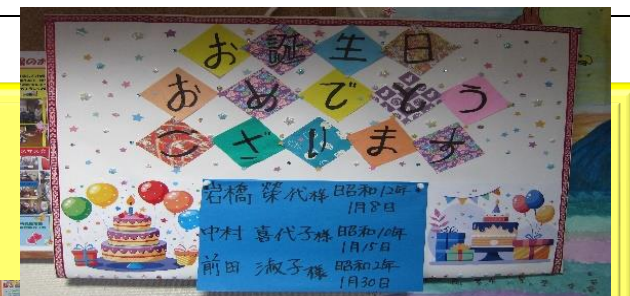 お誕生日
おめでとう
ございます
岩橋 榮代様 昭和12年
1月8日
中村 喜代子様 昭和10年
1月15日
前田 淑子様 昭和2年
1月30日